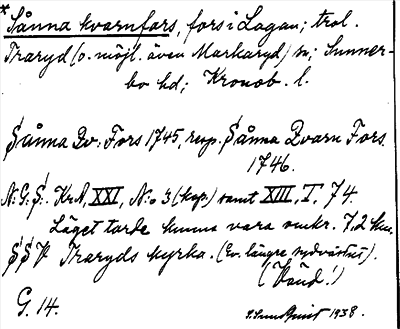 * Sånna kvarnfors, fors i Lagan; trol.
Traryd (o. möjl. även Markaryd) sn; Sunner-
bo hd; Kronob. l.
Sånna Qv: Fors 1745, resp. Sånna Qvarn Fors.
1746.
N:G:S. KrA, XXI, N:o 3 (kop.) samt XIII, T. 74.
Läget torde kunna vara omkr. 7,2 km.
SSV Traryds kyrka. (Ev. längre sydvästut).
(Vänd!)
G. 14. 1938.